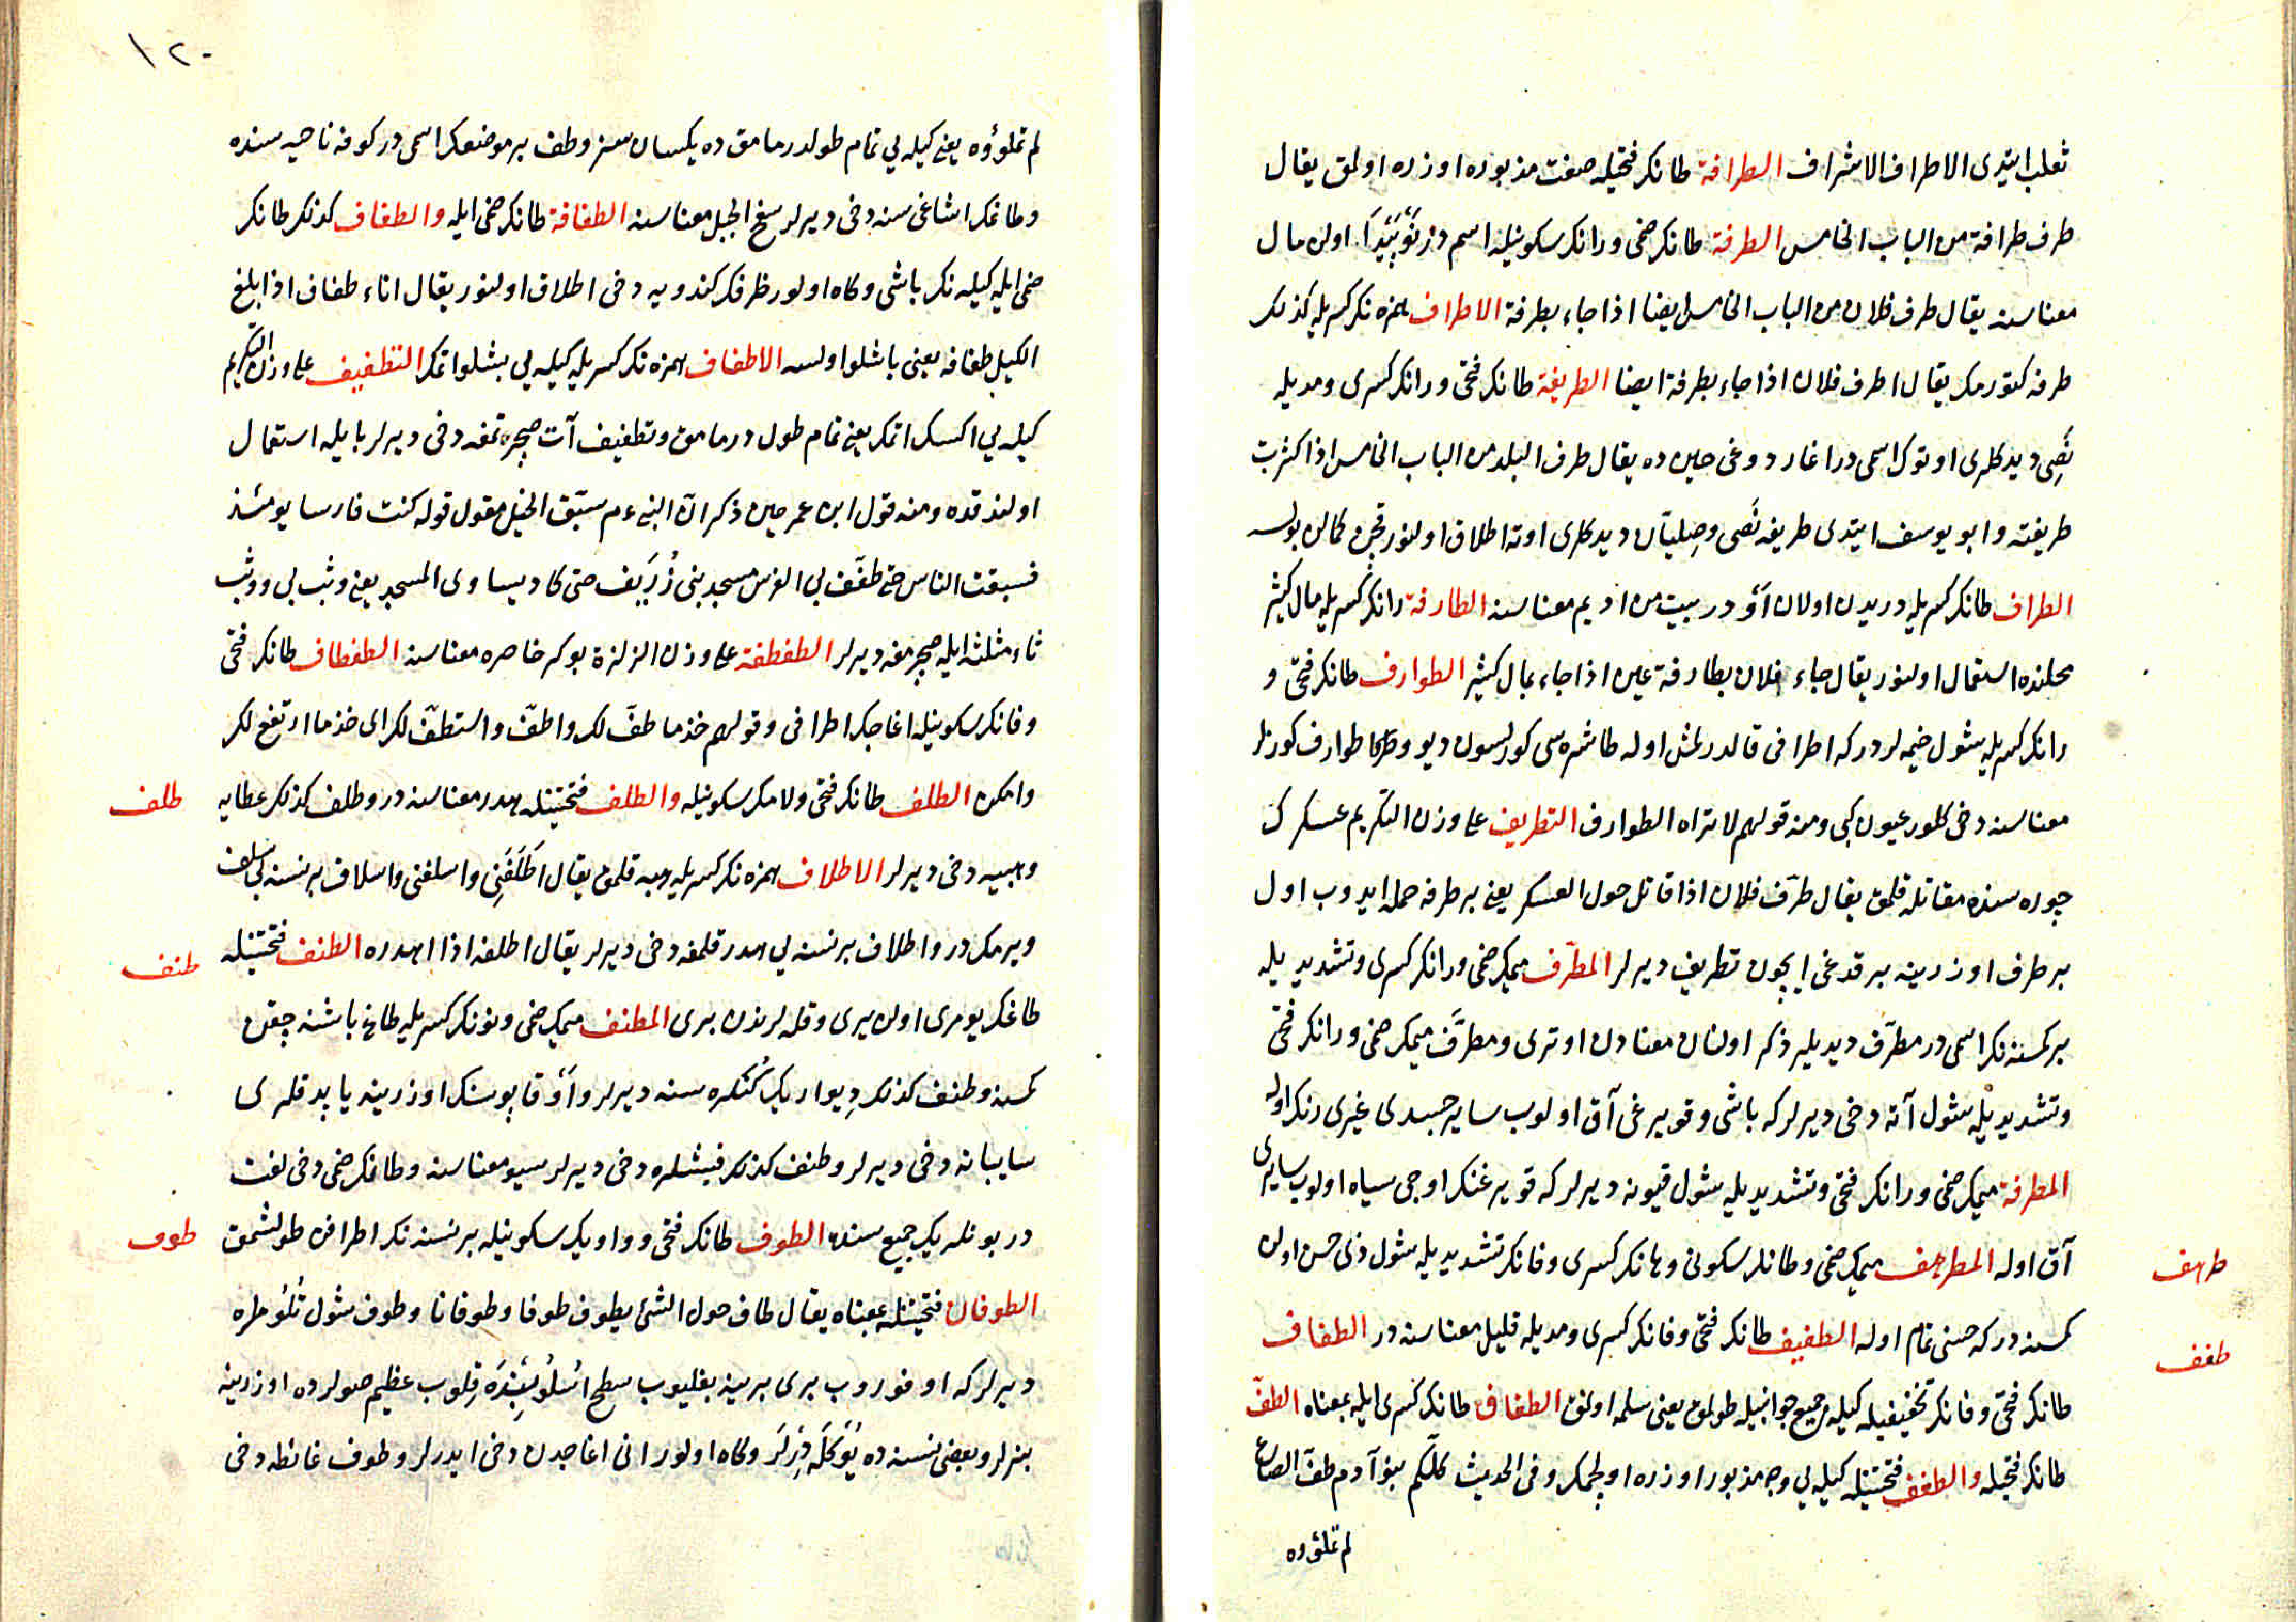 ثعلب ایتدی الاطراف الاشراف الطرافة طانكر فتحیله صفت مذبوره اوزره اولمق یقال
طرف طرافة من الباب الخامس الطرفة طانكر ضمی ورانكر سكونیله اسمدر یكی اولن مال
معناسنه یقال طرف فلان من الباب الخامس ایضا اذا جاء بطرفة الاطراف همزه نكر كسریله كذلك
طرفه كتورمك یقال اطرف فلان اذا جاء بطرفة ایضا الطریفة طانكر فتحی ورانكر كسری ومدیله
نَصِی دیدكلری اوتوك اسمی در اغاردوغی حین ده یقال طرف البلد من الباب الخامس اذا كثرت
طریفته وابو یوسف ایتدی طریفه نَصِی وصِلیان دیدكلری اوته اطلاق اولنور قچن كمالن بولسه
الطراف طانكر كسریله دریدن اولان آو در بیت من ادیم معناسنه الطارفة رانكر كسریله مال كثیر
محلنده استعمال اولنور یقال جاء فلان بطارفة عین اذا جاء بمال كثیر الطوارف طانكر فتحی و
رانكر كسریله شول خیمه لردركه اطرافی قالدرلمش اوله طاشره سی كورلسون دیو وطوارف كوزلر
معناسنه دخی كلور عیون كبی ومنه قولهم لا تراه الطوارف التطریف علی وزن التكریم عسكرك
چوره سنده مقاتله قلمق یقال طرّف فلان اذا قاتل حول العسكر یعنی بر طرفه حمله ایدوب اول
بر طرف اوزرینه بر قدغی ایچون تطریف دیرلر المطرّف میمك ضمی ورانكر كسری وتشدیدیله
بر كمسنه نكر اسمی در مطرّف دیدیلر ذكر اولنان معنادن اوتری ومطرّف میمك ضمی ورانكر فتحی
وتشدیدیله شول آته دخی دیرلركه باشی وقویرغی آق اولوب سایر جسدی غیری رنك اوله
المطرفة میمك ضمی ورانكر فتحی وتشدیدیله شول قیونه دیرلركه قویرغنكر اوجی سیاه اولوب سایری
آق اوله المطرهف میمك ضمی وطانكر سكونی وهانكر كسری وفانكر تشدیدیله شول ذی حسن اولن
طرهف
كمسنه دركه حسنی تمام اوله الطفیف طانكر فتحی وفانكر كسری ومدیله قلیل معناسنه در الطفاف
طفف
طانكر فتحی وفانكر تخفیفیله كیله جمیع جوانبیله طولمق یعنی سلمه اولمق الطفاف طانكر كسری ایله بمعناه الطفّ
طانكر فتحیله والطفف فتحتینله كیله یی وجه مذبور اوزره اولچمك وفی الحدیث كلّكم بنو آدم طفّ الصاع
لم تملؤوه
١٢٠
لم تملؤوه یعنی كیله یی تمام طولدرمامق ده یكسان سز وطف بر موضعك اسمی در كوفه ناحیه سنده
وطاغكر اشاغی سنه دخی دیرلر سفح الجبل معناسنه الطفافة طانكر ضمی ایله والطفاف كذلك طانكر
ضمی ایله كیله نكر باشی وكاه اولور ظرفكر كندویه دخی اطلاق اولنور یقال اناء طفاف اذا بلغ
الكیل طفافه یعنی باشلو اولسه الاطفاف همزه نكر كسریله كیله یی بشلو اتمك التطفیف علی وزن التكریم
كیله یی اكسك اتمك یعنی تمام طولدرمامق وتطفیف آت صچرتمغه دخی دیرلر با یله استعمال
اولندقده ومنه قول ابن عمر حین ذكر انّ النبی عم سبّق الخیل مقول قوله كنت فارسا یومئذ
فسبقت الناس حتی طفّف بی الفرس مسجد بنی زُرَیف حتی كاد یساوی المسجد یعنی وثب بی ووثب
ثاء مثلثه ایله صچرمغه دیرلر الطفطفة علی وزن الزلزلة بوكر خاصره معناسنه الطفطاف طانكر فتحی
وفانكر سكونیله اغاجك اطرافی وقولهم خذ ما طفّ لك واطفّ واستطفّ لك ای خذ ما ارتفع لك
وامكن الطلف طانكر فتحی ولامك سكونیله والطلف فتحتینله هدر معناسنه در وطلف كذلك عطایه
طلف
وهبیه دخی دیرلر الاطلاف همزه نكر كسریله هبه قلمق یقال اَطلَفَنِی واسلفنی واسلاف بر نسنه یی سلف
ویرمكدر واطلاف بر نسنه یی هدر قلمغه دخی دیرلر یقال اطلفه اذا اهدره الطنف فتحتینله
طنف
طاغكر یومری اولن یری وقله لرندن بری المطنف میمك ضمی ونونكر كسریله طاغ باشنه چقن
كمسنه وطنف كذلك دیوارك كُنكَره سنه دیرلر وآو قاپوسنكر اوزرینه یاپدقلری
سایبانه دخی دیرلر وطنف كذلك قیشلره دخی دیرلر سیور معناسنه وطانكر ضمی دخی لغت
در بونلرك جمیع سنده الطوف طانكر فتحی وواوك سكونیله بر نسنه نكر اطرافن طولشمق
طوف
الطوفان فتحتینله بمعناه یقال طاف حول الشئ یطوف طوفا وطوفانا وطوف شول تُلُوملره
دیرلركه اوفوروب بری برینه بغلیوب سطح اُسلوبنده قلوب عظیم صولرده اوزرینه
بنرلر وبعضی نسنه ده یُوكلَه دِرلَر وكاه اولور انی اغاجدن دخی ایدرلر وطوف غائطه دخی